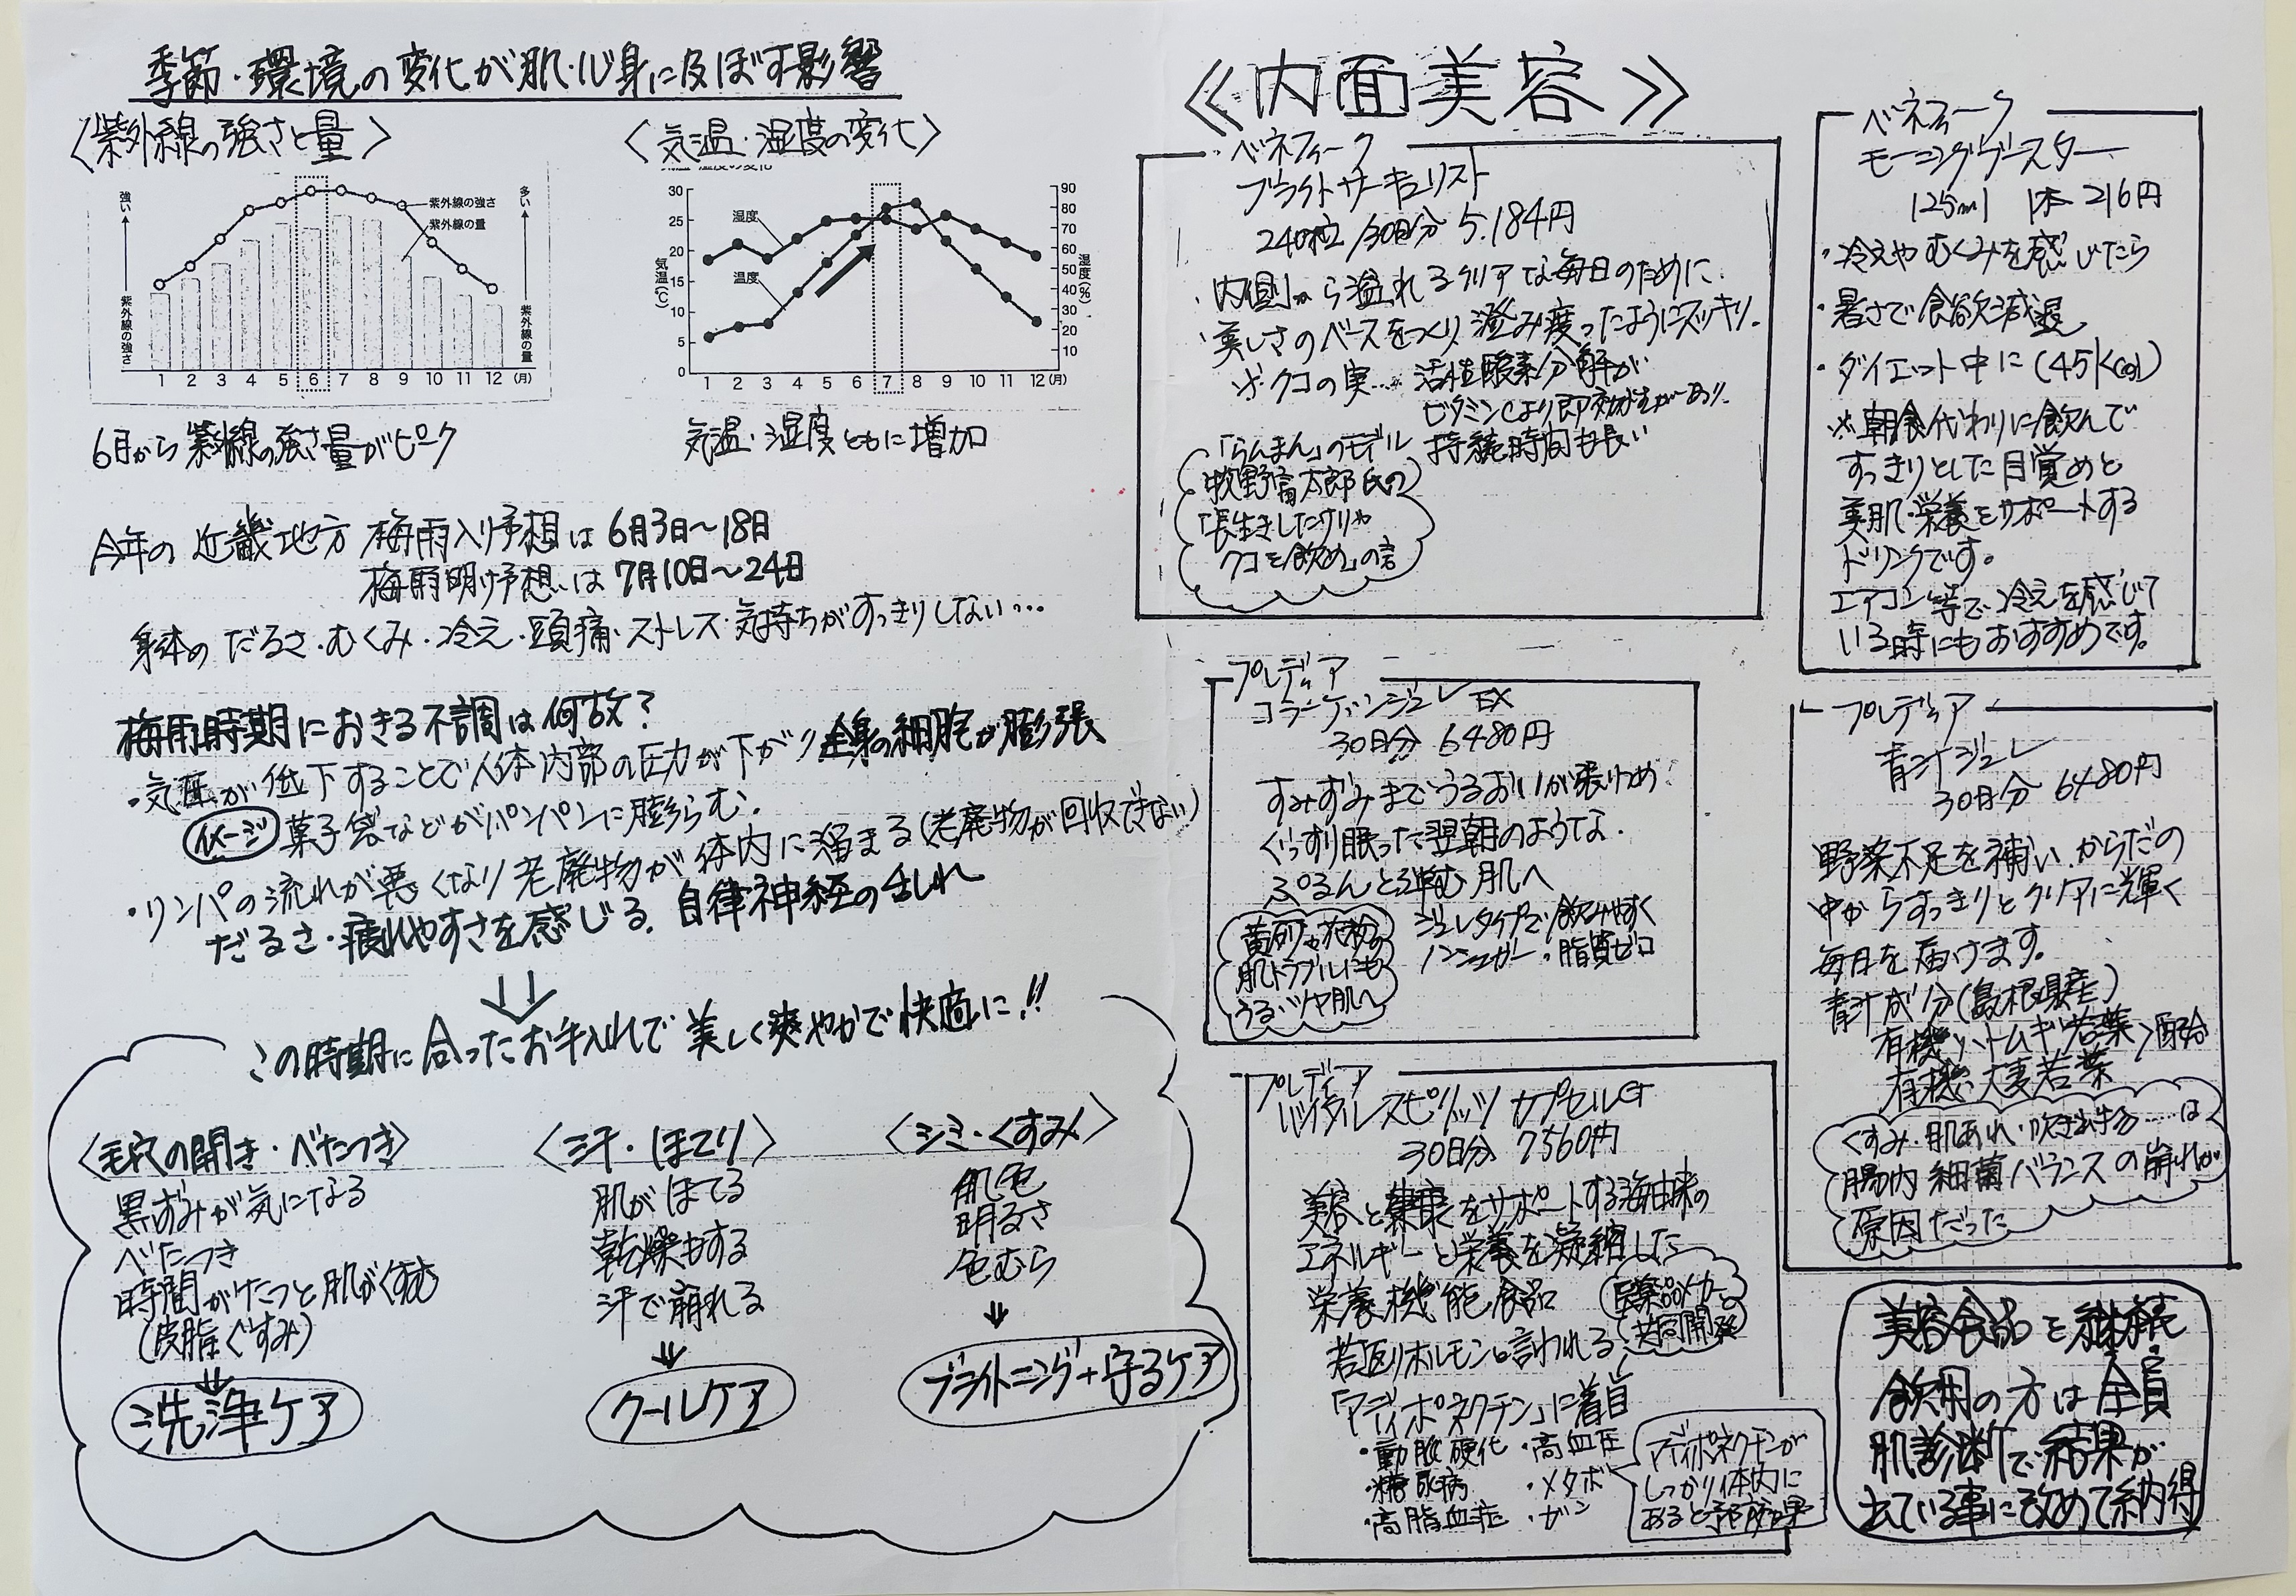 季節・環境の変化が肌・心身に及ぼす影響
〈紫外線の強さと量〉
強い
紫外線の強さ
多い
紫外線の量
紫外線の強さ
紫外線の量
1 2 3 4 5 6 7 8 9 10 11 12 (月)
6月から紫外線の強さ量がピーク
〈気温・湿度の変化〉
30
25
20
15
10
5
0
気温(℃)
湿度
温度
90
80
70
60
50
40
30
20
10
湿度(%)
1 2 3 4 5 6 7 8 9 10 11 12(月)
気温・湿度ともに増加
今年の近畿地方 梅雨入り予想は6月3日〜18日
梅雨明け予想は7月10日〜24日
身体のだるさ・むくみ・冷え・頭痛・ストレス・気持ちがすっきりしない…
梅雨時期におきる不調は何故?
・気圧が低下することで人体内部の圧力が下がり全身の細胞が膨張
イメージ 菓子袋などがパンパンに膨らむ.
・リンパの流れが悪くなり老廃物が体内に溜まる(老廃物が回収できない)
だるさ・疲れやすさを感じる. 自律神経の乱れ
この時期に合ったお手入れで美しく爽やかで快適に!!
〈毛穴の開き・べたつき〉
黒ずみが気になる
べたつき
時間がたつと肌がくすむ
(皮脂くすみ)
洗浄ケア
〈汗・ほてり〉
肌がほてる
乾燥もする
汗で崩れる
クールケア
〈シミ・くすみ〉
肌色
明るさ
色むら
ブライトニング+守るケア
《内面美容》
ベネフィーク
ブライトサーキュリスト
240粒/30日分 5.184円
・内側から溢れるクリアな毎日のために
・美しさのベースをつくり澄み渡ったようにスッキリ.
クコの実… 活性酸素分解が
ビタミンCより即効性があり.
持続時間も長い
「らんまん」のモデル
牧野富太郎氏の
「長生きしたけりゃ
クコを飲め」の言
ベネフィーク
モーニングブースター
125ml 1本 216円
・冷えやむくみを感じたら
・暑さで食欲減退
・ダイエット中に(45kcal)
※朝食代わりに飲んで
すっきりとした目覚めと
美肌・栄養をサポートする
ドリンクです。
エアコン等で冷えを感じて
いる時にもおすすめです。
プレディア
コラーゲンジュレ EX
30日分 6480円
すみずみまでうるおいが張りつめ
ぐっすり眠った翌朝のような.
ぷるんと弾む肌へ
ジュレタイプで飲みやすく
ノンシュガー・脂質ゼロ
黄砂や花粉の
肌トラブルにも
うるツヤ肌へ
プレディア
青汁ジュレ
30日分 6480円
野菜不足を補い、からだの
中からすっきりとクリアに輝く
毎日を届けます。
青汁成分(島根県産)
有機ハトムギ若葉
有機大麦若葉
〉配合
くすみ・肌あれ・吹き出物……は
腸内細菌バランスの崩れが
原因だった
プレディア
バイタルスピリッツ カプセルGT
30日分 7560円
美容と健康をサポートする海由来の
エネルギーと栄養を凝縮した
栄養機能食品
医薬品メーカーの
共同開発
若返りホルモンと言われる
「アディポネクチン」に着目
・動脈硬化 ・高血圧
・糖尿病 ・メタボ
・高脂血症 ・ガン
アディポネクチンが
しっかり体内に
あると予防効果
美容食品を継続
飲用の方は全員
肌診断で結果が
出ている事に改めて納得